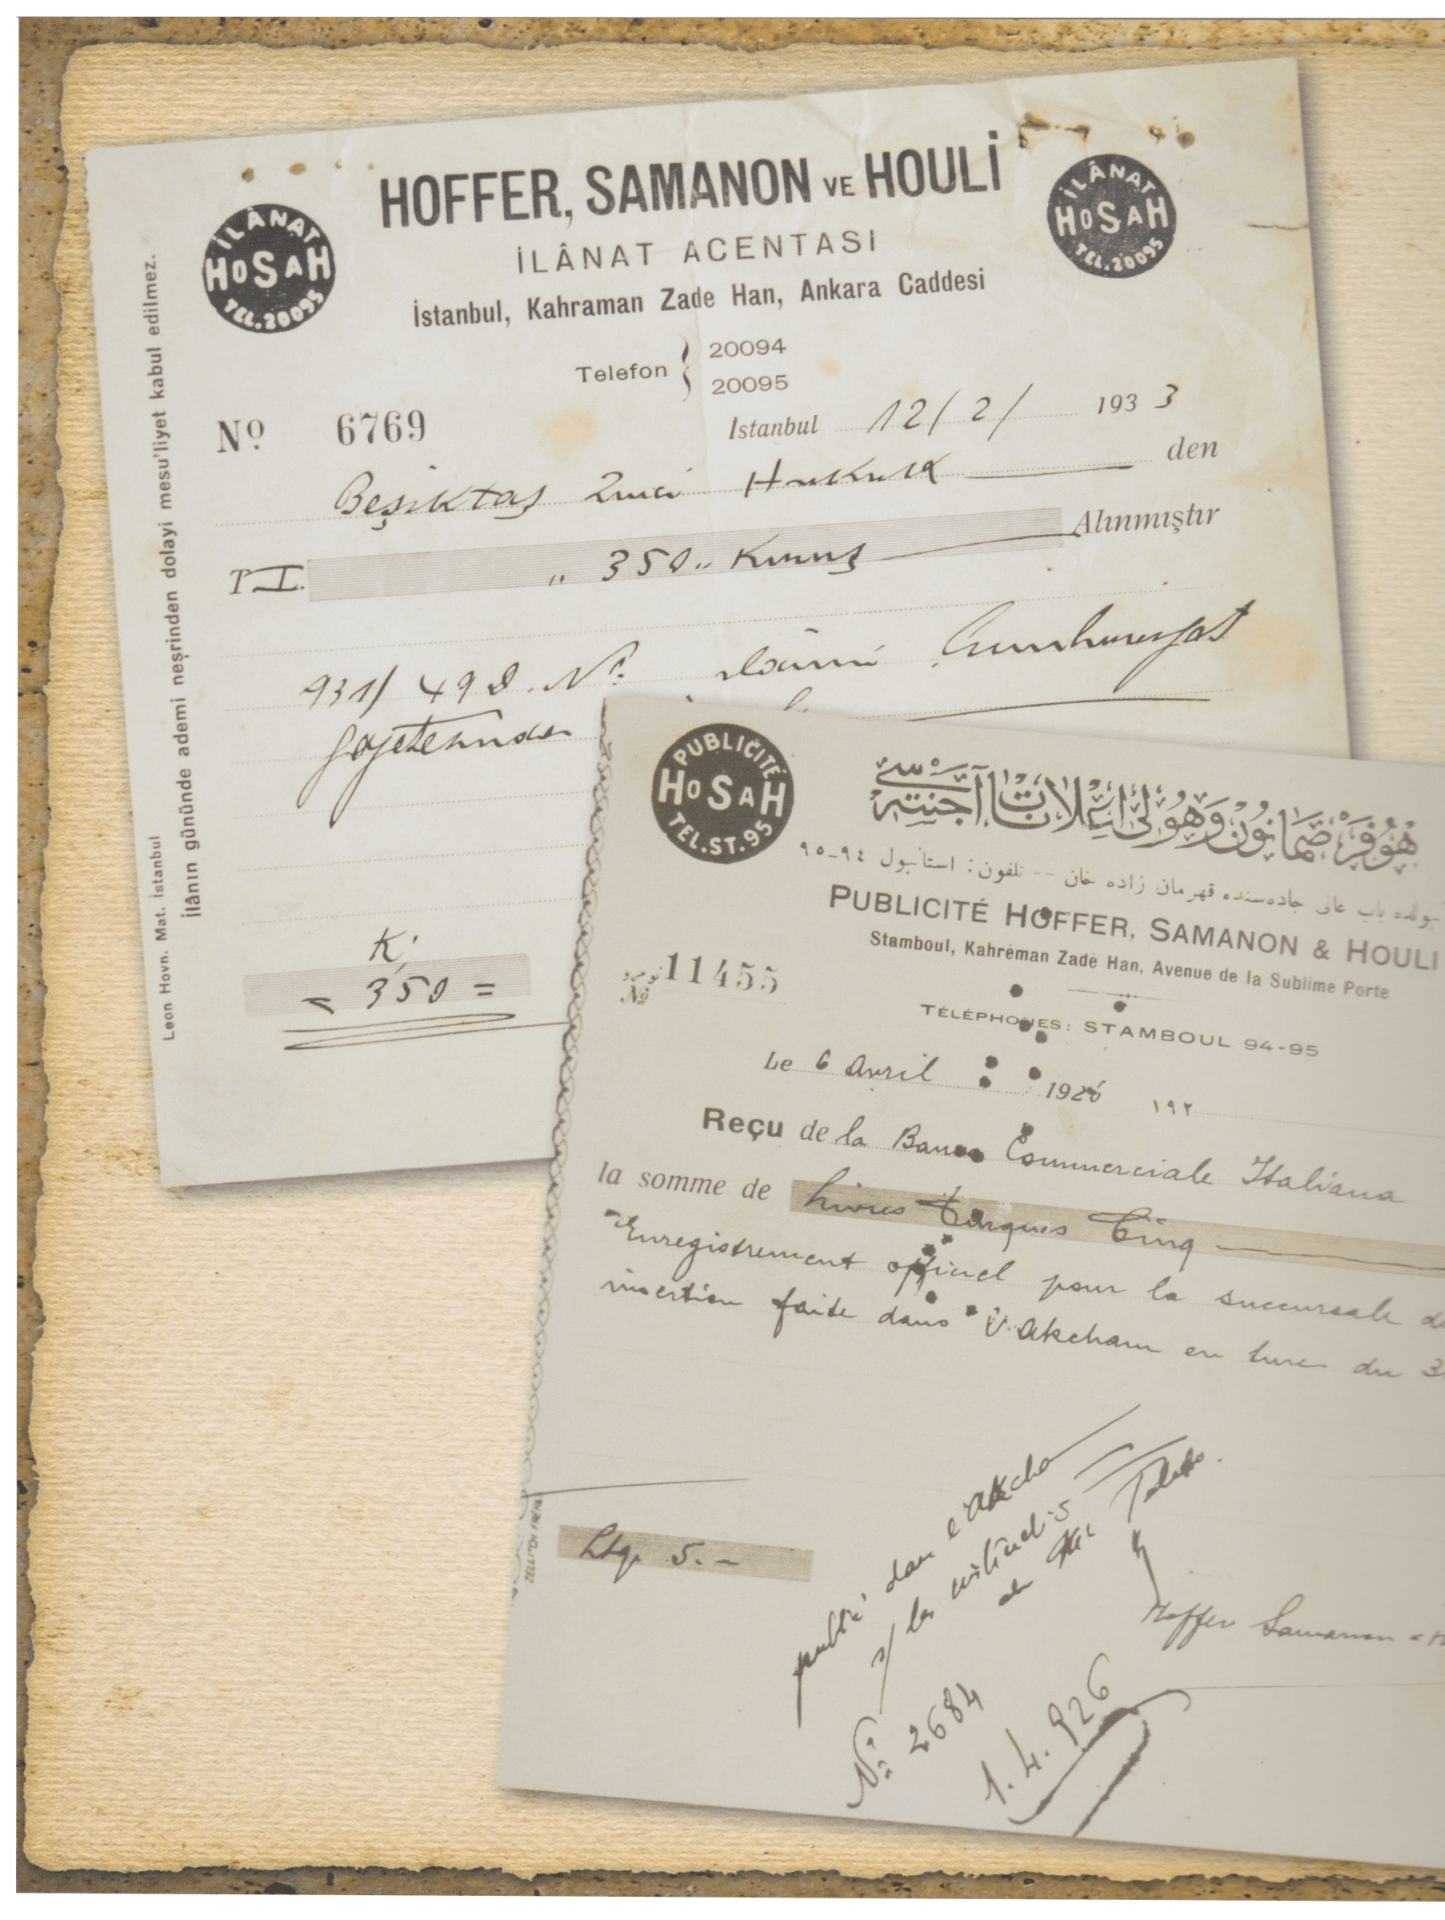 HOFFER, SAMANON VE HOULİ
İLÂNAT ACENTASI
İstanbul, Kahraman Zade Han, Ankara Caddesi
İLÂNAT
HOSAH
TEL.20095
İLÂNAT
HOSAH
TEL.20095
Telefon { 20094
20095
No 6769
Istanbul 12/2/ 1933
Beşiktaş 2inci Hukuk den
T L. ,, 350 ,, Kuruş Alınmıştır
931/498 No ilânı Cumhuriyet
gazetesinde
K.
350 =
İlânın gününde ademi neşrinden dolayi mesu'liyet kabul edilmez.
Leon Hovn. Mat. İstanbul
PUBLICITÉ
HOSAH
TEL.ST.95
هوفر، صمانون وهولی اعلانات آجنته سی
باب عالی جاده‌سنده قهرمان زاده خان -- تلفون: استانبول ٩٤-٩٥
PUBLICITÉ HOFFER, SAMANON & HOULI
Stamboul, Kahréman Zadé Han, Avenue de la Sublime Porte
TÉLÉPHONES: STAMBOUL 94-95
No 11455
Le 6 Avril 1926 ١٩٢
Reçu de la Banca Commerciale Italiana
la somme de Livres Turques Cinq
Enregistrement officiel pour la succursale de
insertion faite dans l'Akcham en turc du 3
Ltq. 5.-
publié dans l'Akcham
No 2684
1.4.926
Hoffer Samanon & H